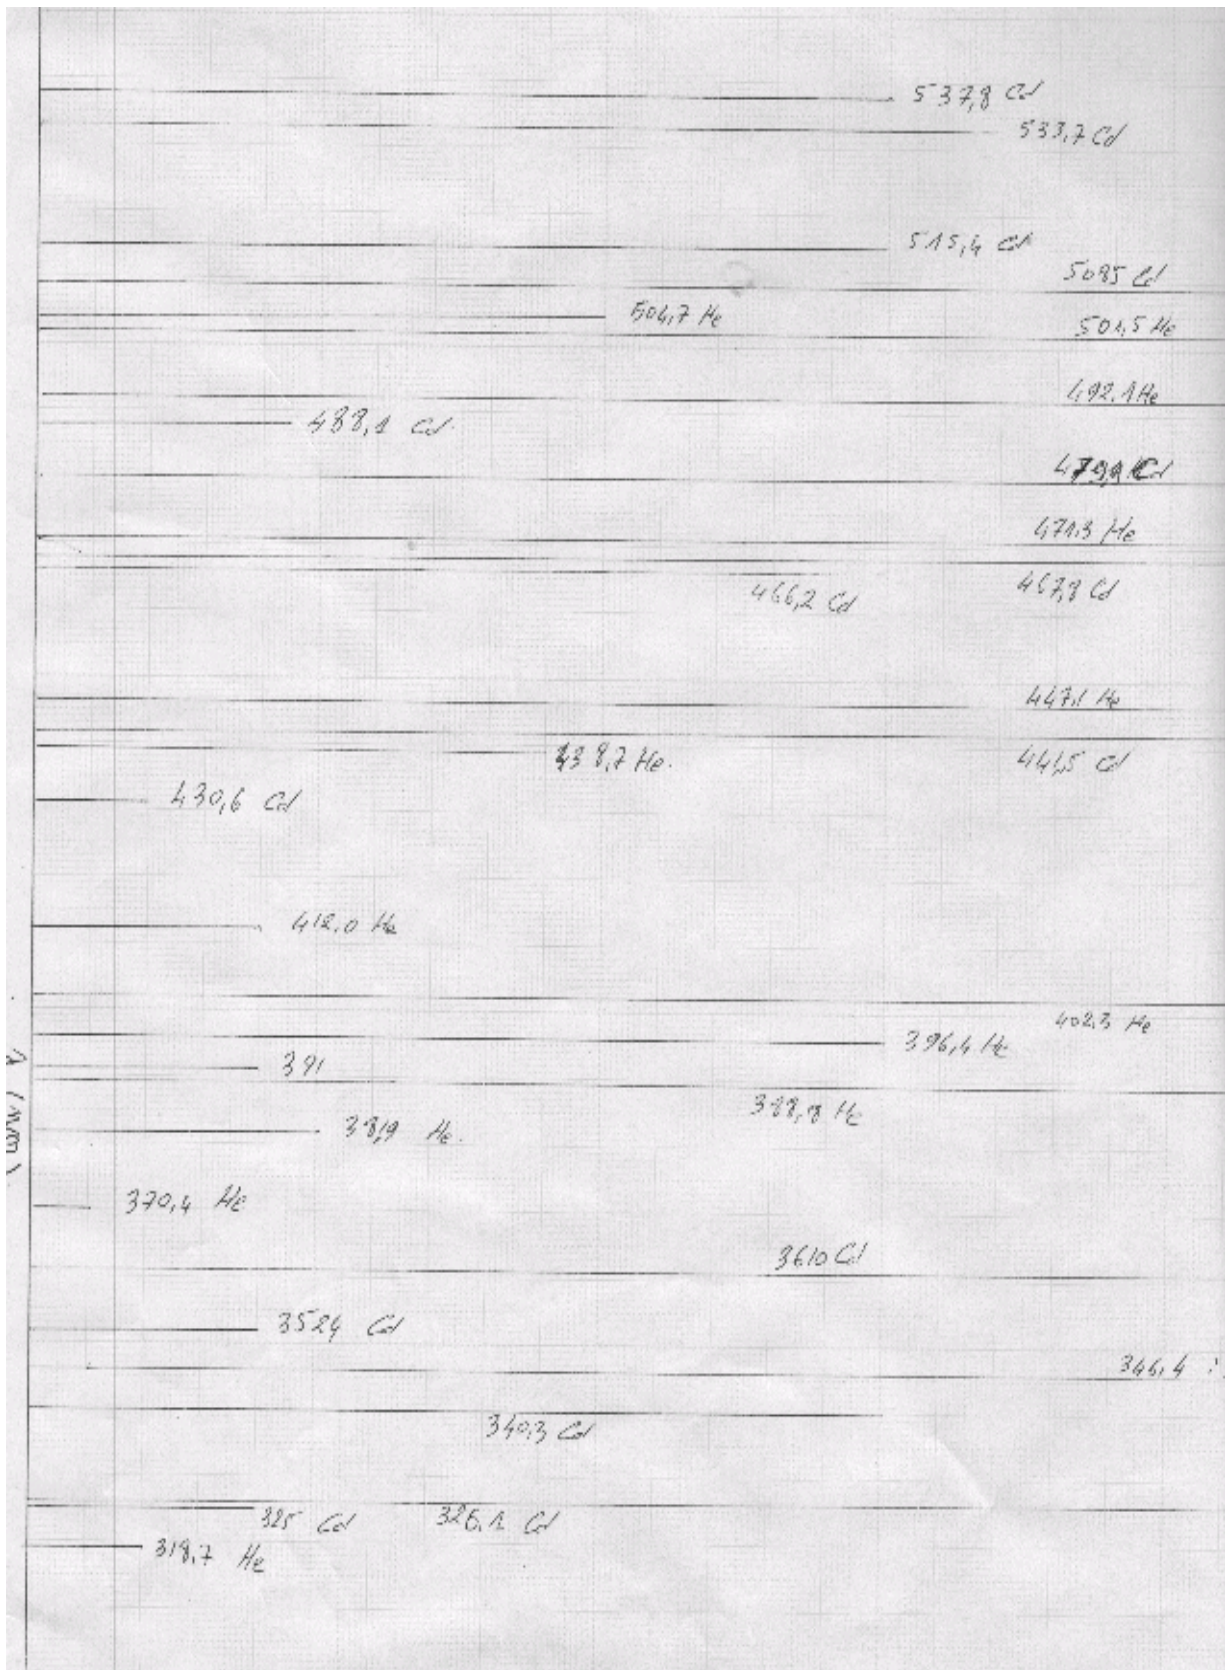 537,8 Cd
533,7 Cd
515,4 Cd
5085 Cd
504,7 He
501,5 He
492.1 He
488,1 Cd
471.3 He
467,8 Cd
466,2 Cd
447,1 He
441,5 Cd
438,7 He.
430,6 Cd
412.0 He
402.3 He
396,4 He
391
388,8 He
38,9 He.
370,4 He
3610 Cd
3524 Cd
346,4
340,3 Cd
325 Cd 326,1 Cd
318,7 He